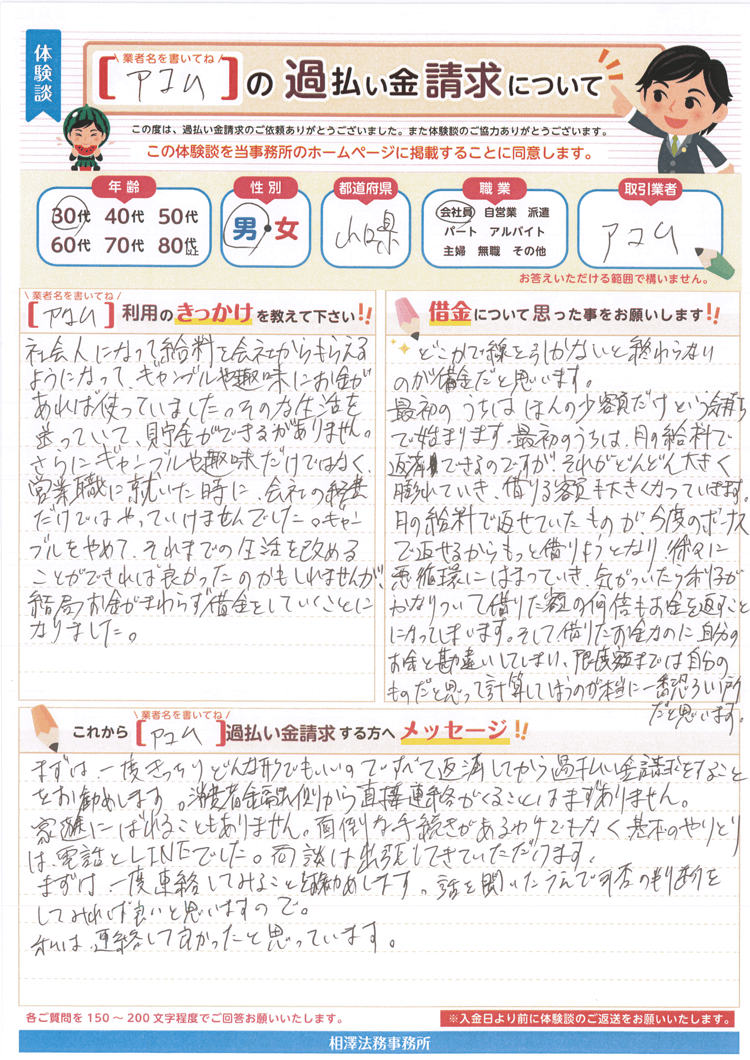 体験談
\ 業者名を書いてね /
[アコム]の過払い金請求について
この度は、過払い金請求のご依頼ありがとうございました。また体験談のご協力ありがとうございます。
この体験談を当事務所のホームページに掲載することに同意します。
年齢
30代 40代 50代
60代 70代 80代以上
性別
男・女
都道府県
山口県
職業
会社員 自営業 派遣
パート アルバイト
主婦 無職 その他
取引業者
アコム
お答えいただける範囲で構いません。
\ 業者名を書いてね /
[アコム]利用のきっかけを教えて下さい!!
社会人になって給料を会社からもらえる
ようになって、ギャンブルや趣味にお金が
あれば使っていました。そのな生活を
送っていて、貯金ができるがありません。
さらにギャンブルや趣味だけではなく、
営業職に就いた時に、会社の経費
だけではやっていけませんでした。ギャン
ブルをやめて、それまでの生活を改める
ことができれば良かったのかもしれませんが、
結局お金がまわらず借金をしていくことに
なりました。
借金について思った事をお願いします!!
どこかで線を引かないと終わらない
のが借金だと思います。
最初のうちは ほんの少額だけという気持ち
で始まります。最初のうちは、月の給料で
返済できるのですが、それがどんどん大きく
膨れていき、借りる額も大きくなっていきます。
月の給料で返せていたものが今度のボーナス
で返せるからもっと借りようとなり、徐々に
悪循環にはまっていき、気がついたら利子が
かなりついて借りた額の何倍もお金を返すこと
になってしまいます。そして借りたお金なのに自分の
お金と勘違いしてしまい、限度額までは自分の
ものだと思って計算してしまうのが本当に一番恐ろしい所
だと思います。
\ 業者名を書いてね /
これから[アコム]過払い金請求する方へメッセージ!!
まずは、一度きっちりどんな形でもいいのですべて返済してから過払い金請求をすること
をお勧めします。消費者金融側から直接連絡がくることはまずありません。
家族にばれることもありません。面倒な手続きがあるわけでもなく基本のやりとり
は、電話とLINEでした。面談は出張してきていただけます。
まずは、一度連絡してみることを勧めします。話を聞いたうえで可否の判断を
してみれば良いと思いますので。
私は、連絡して良かったと思っています。
各ご質問を150〜200文字程度でご回答お願いいたします。
※入金日より前に体験談のご返送をお願いいたします。
相澤法務事務所